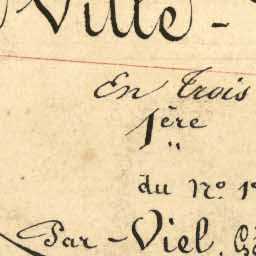 Ville -
En Trois
1ère
"
du No. 1
Par - Viel,